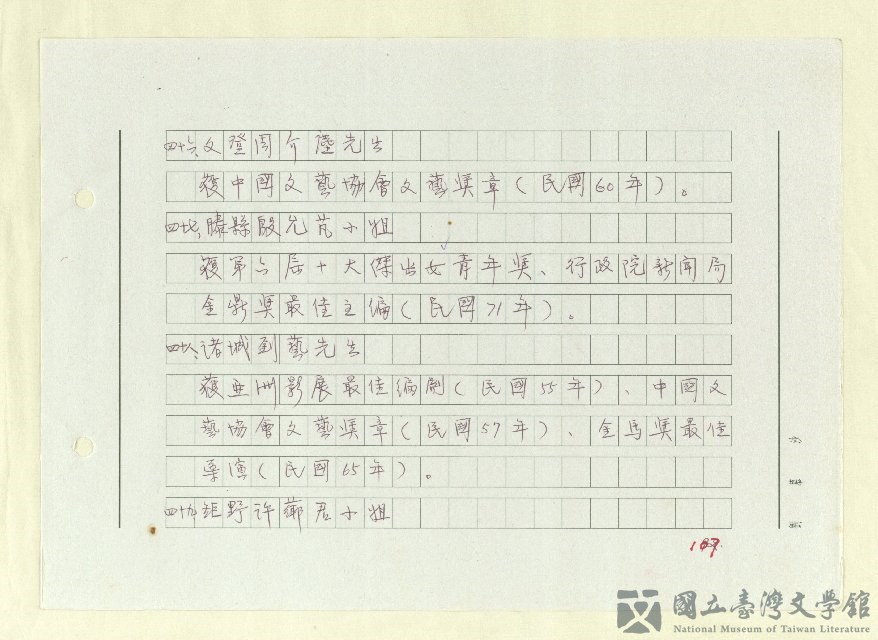 四十六、文登周介塵先生
獲中國文藝協會文藝獎章（民國60年）。
四十七、滕縣殷允芃小姐
獲第六屆十大傑出女青年獎、行政院新聞局
金鼎獎最佳主編（民國71年）。
四十八、諸城劉藝先生
獲亞洲影展最佳編劇（民國55年）、中國文
藝協會文藝獎章（民國57年）、金馬獎最佳
導演（民國65年）。
四十九、鉅野許薌君小姐
國立臺灣文學館
National Museum of Taiwan Literature